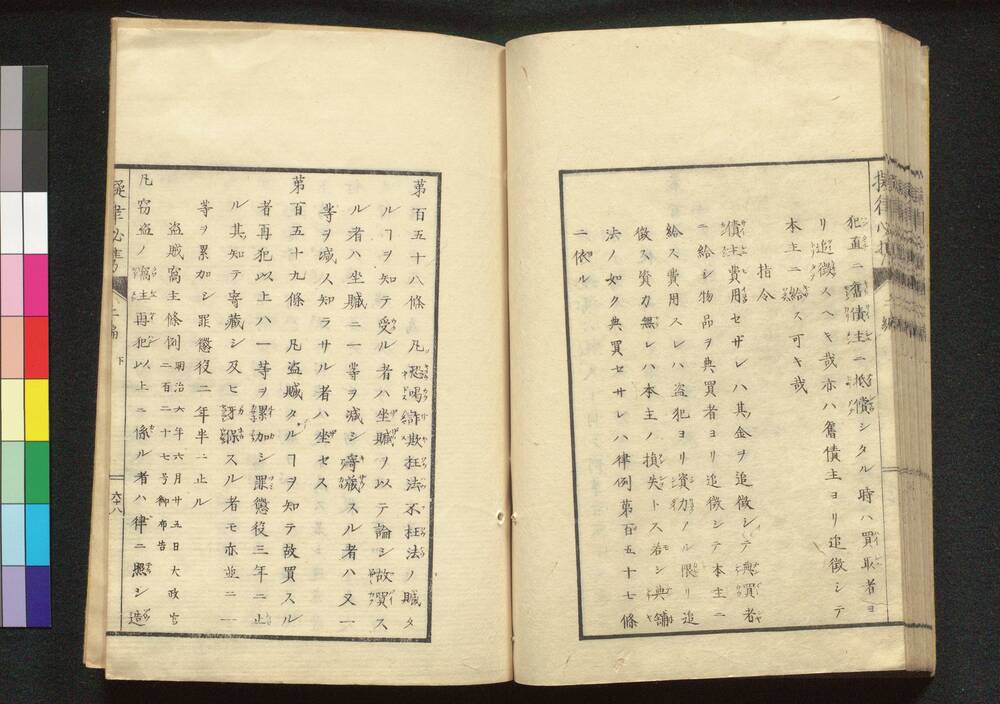 犯直ニ舊債主ニ抵償シタル時ハ買取者ヨ
リ追徴スヘキ哉亦ハ舊債主ヨリ追徴シテ
本主ニ給ス可キ哉
指令
債主費用セザレハ其金ヲ追徴シテ典買者
ニ給シ物品ヲ典買者ヨリ追徴シテ本主ニ
給ス費用スレハ盗犯ヨリ資力ノル限リ追
徴ス資力無レハ本主ノ損失トス若シ典舗
法ノ如ク典買セサレハ律例第百五十七條
ニ依ル
第百五十八條 凡恐喝詐欺枉法不枉法ノ贓タ
ルヿヲ知テ受ル者ハ坐贓ヲ以テ論シ故買ス
ル者ハ坐贓ニ一等ヲ減シ寄蔵スル者ハ又一
等ヲ減ス知ラサル者ハ坐セス
第百五十九條 凡盗贓タルヿヲ知テ故買スル
者再犯以上ハ一等ヲ累加シ罪懲役三年ニ止
ル其知テ寄蔵シ及ヒ牙保スル者モ亦並ニ一
等ヲ累加シ罪懲役二年半ニ止ル
盗賊窩主條例 明治六年六月廿五日大政官
二百二十七号御布告
凡窃盗ノ窩主再犯以上ニ係ル者ハ律ニ照シ造
二編 下
六十八